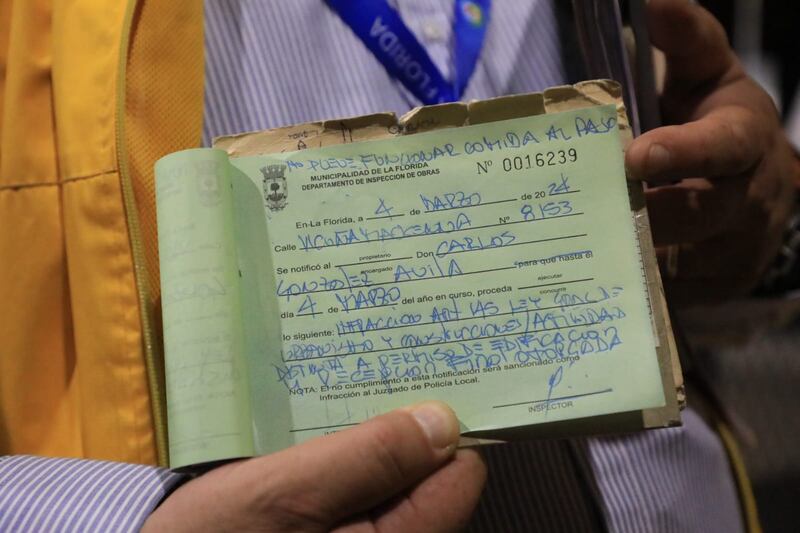 FLORIDA
NO PUEDE FUNCIONAR COMIDA AL PASO
MUNICIPALIDAD DE LA FLORIDA
DEPARTAMENTO DE INSPECCION DE OBRAS
Nº 0016239
En La Florida, a 4 de MARZO de 2024
Calle VICUÑA MACKENNA Nº 8153
propietario
Se notificó al Don CARLOS
encargado
GONZALEZ AVILA para que hasta el
ejecutar
día 4 de MARZO del año en curso, proceda
concurra
lo siguiente: INFRACCION ART 145 LEY GRAL DE
URBANISMO Y CONSTRUCCIONES/ACTIVIDAD
DISTINTA A PERMISO DE EDIFICACION
Y RECEPCION NO OTORGADA
NOTA: El no cumplimiento a esta notificación será sancionado como
Infracción al Juzgado de Policía Local.
INSPECTOR